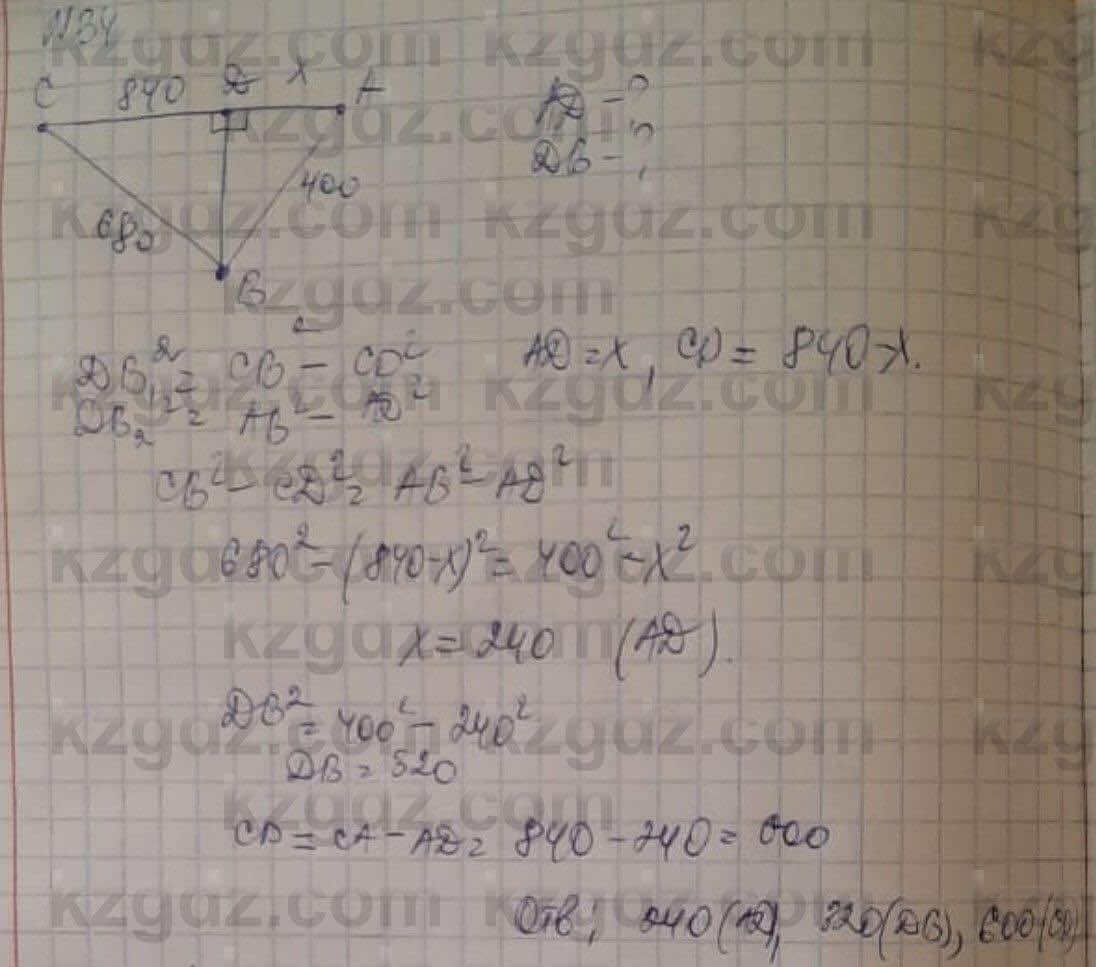 №34
C 840 D x A
AD - ?
DB - ?
400
680
B
DB₁² = CB² - CD²
AD = x, CD = 840-x.
DB₂² = AB² - AD²
CB² - CD² = AB² - AD²
680² - (840-x)² = 400² - x²
x = 240 (AD).
DB² = 400² - 240²
DB = 320
CD = CA - AD = 840 - 240 = 600
Отв; 240 (AD), 320 (DB), 600 (CD)
kzgdz.com